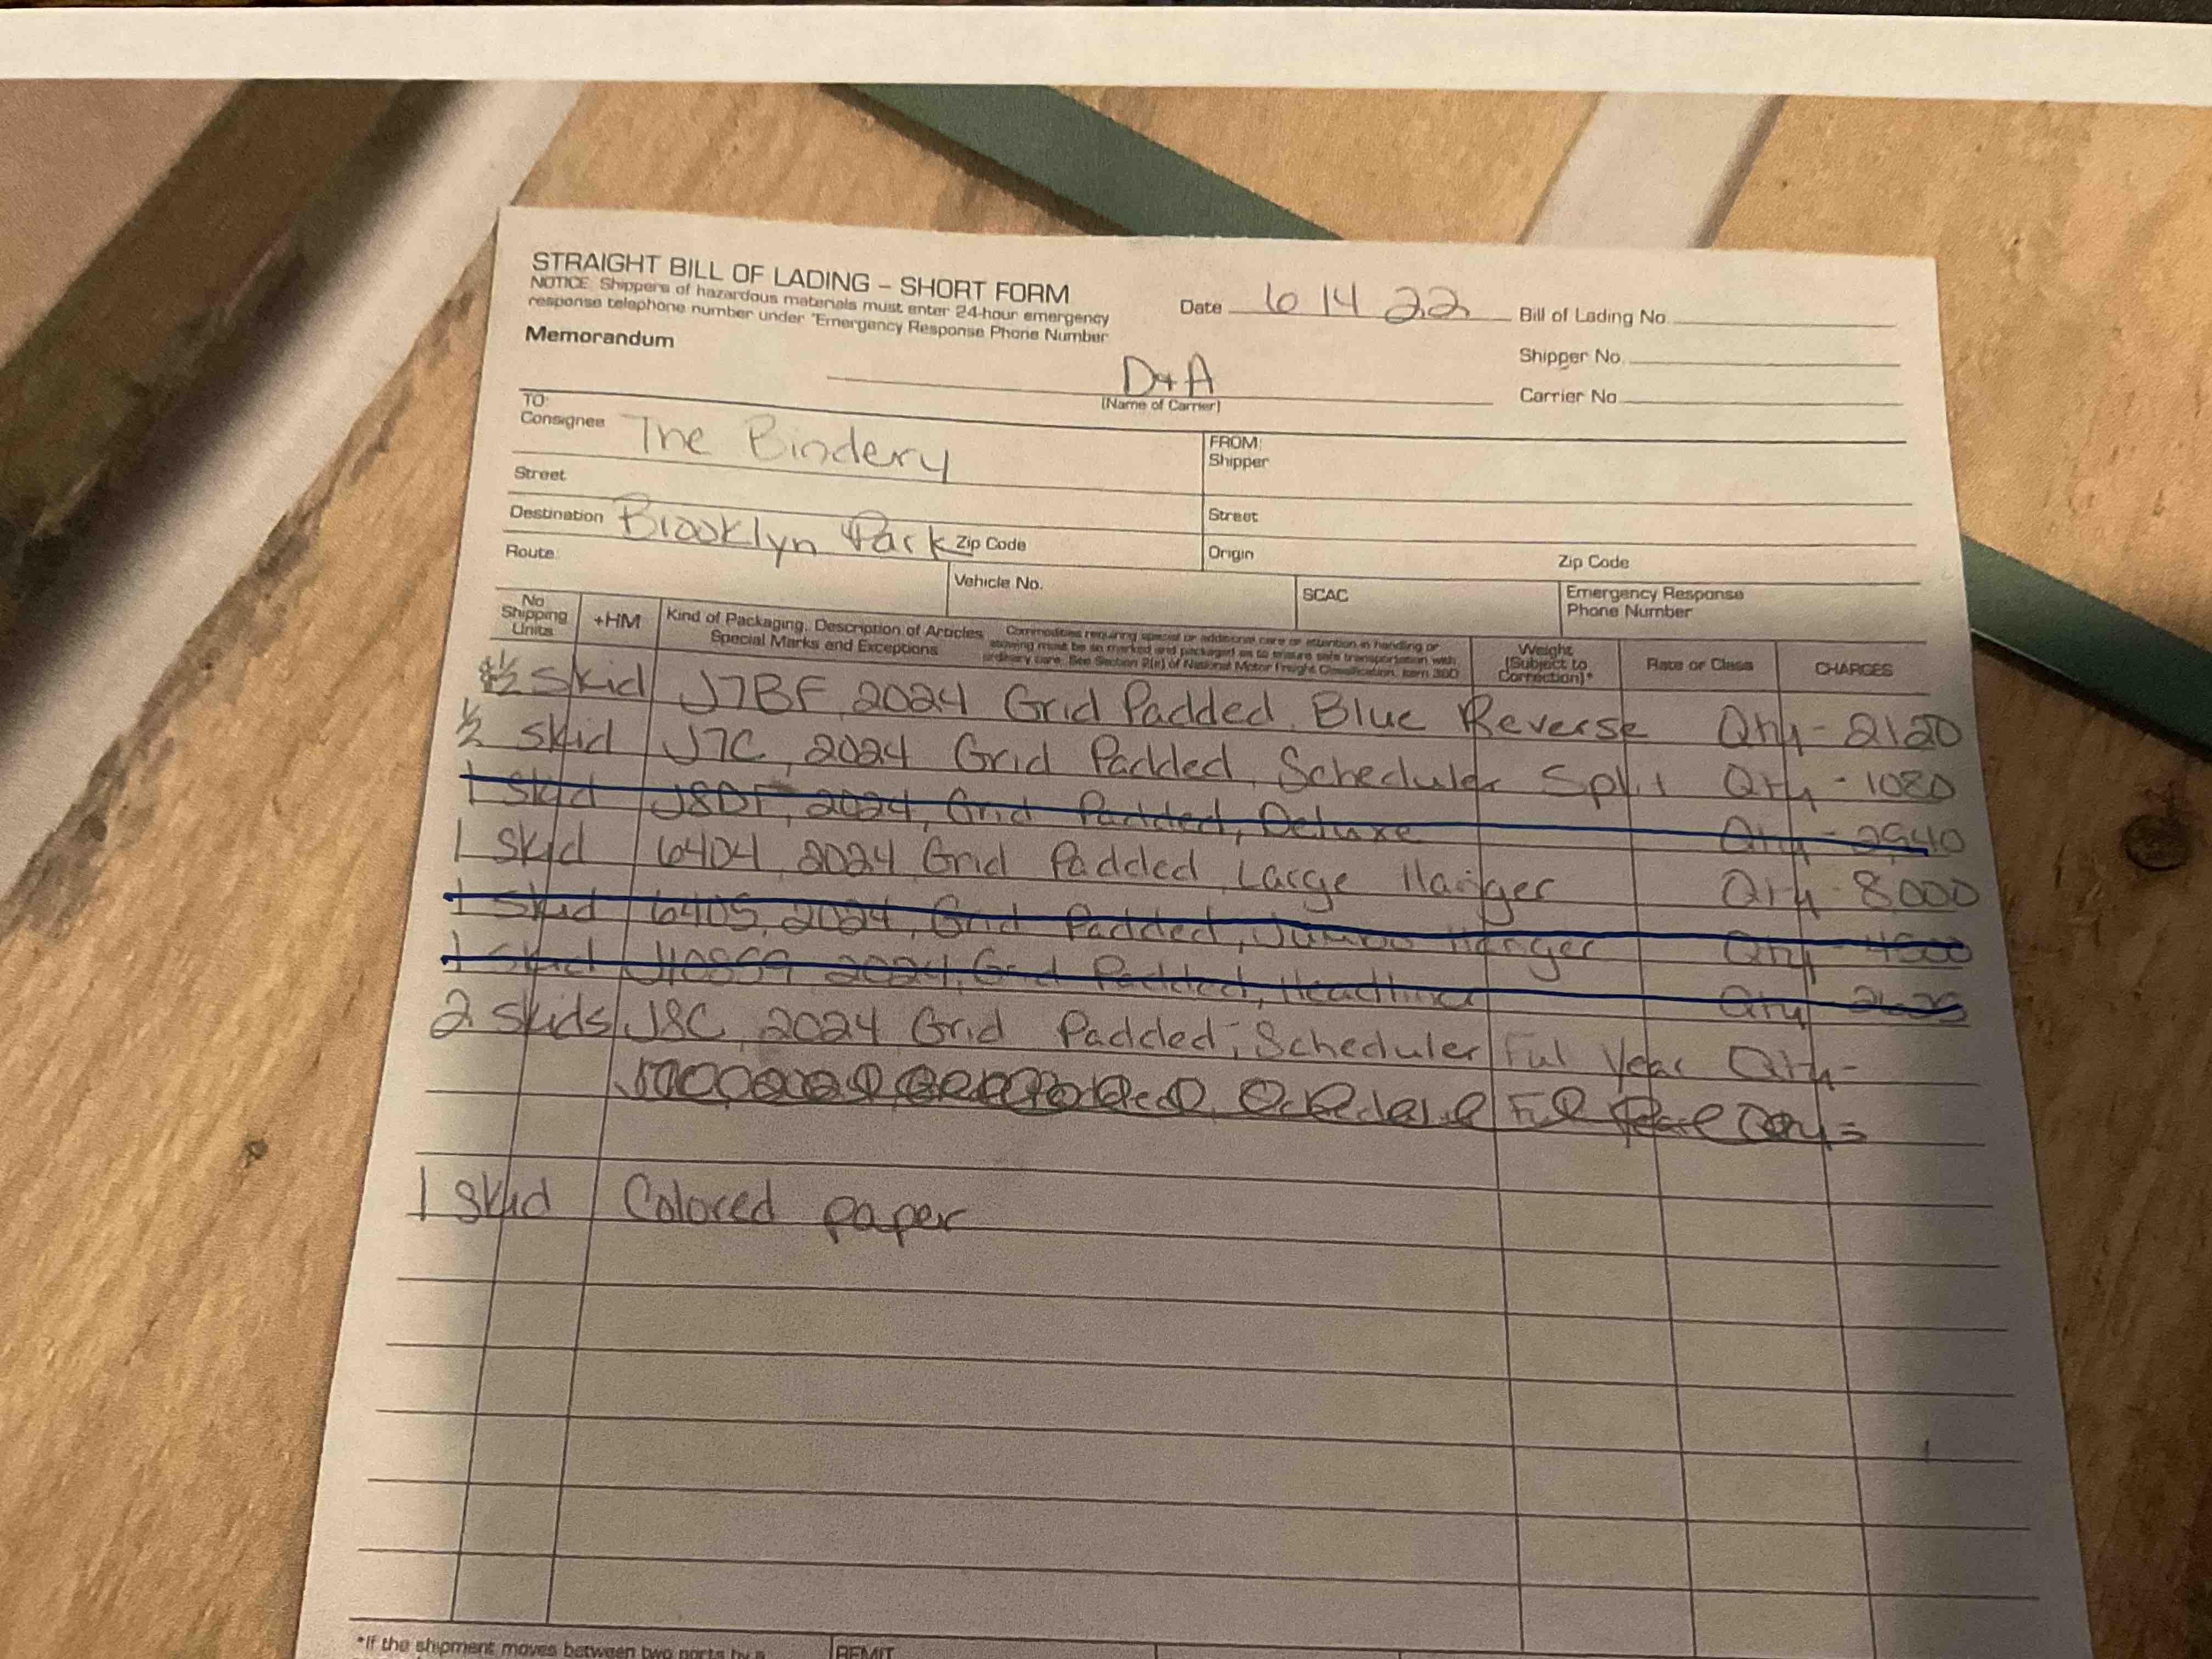 STRAIGHT BILL OF LADING – SHORT FORM
NOTICE: Shippers of hazardous materials must enter 24-hour emergency
response telephone number under "Emergency Response Phone Number
Memorandum
Date 6 14 22
Bill of Lading No.
Shipper No.
Carrier No.
D+A
(Name of Carrier)
TO:
Consignee The Bindery
FROM:
Shipper
Street
Street
Destination Brooklyn Park Zip Code
Origin
Zip Code
Route:
Vehicle No.
SCAC
Emergency Response
Phone Number
No
Shipping
Units
+HM
Kind of Packaging, Description of Articles
Special Marks and Exceptions
Commodities requiring special or additional care or attention in handling or
stowing must be so marked and packaged as to ensure safe transportation with
ordinary care. See Section 2(e) of National Motor Freight Classification, Item 360
Weight
(Subject to
Correction)*
Rate or Class
CHARGES
1/2 skid J7BF, 2024 Grid Padded, Blue Reverse Qty - 2120
1/2 skid J7C, 2024 Grid Padded, Scheduler Split Qty - 1080
1 skid J8DF, 2024, Grid Padded, Deluxe Qty - 2940
1 skid 6404, 2024 Grid Padded Large Hanger Qty - 8,000
1 skid 6405, 2024, Grid Padded, Jumbo Hanger Qty - 4500
1 skid 2024, Grid Padded, Headliner Qty
2 skids J8C, 2024 Grid Padded, Scheduler Ful Year Qty -
1 skid Colored paper
*If the shipment moves between two ports by a
REMIT